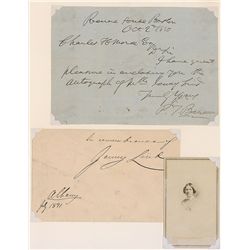 Revere House Boston
Oct 2ᵈ 1850
Charles H. Morse Esq
Dr Sir
I have great
pleasure in enclosing you the
autograph of Jenny Lind
Truly Yours
P. T. Barnum
in remembrance of
Jenny Lind
Albany
July 1851